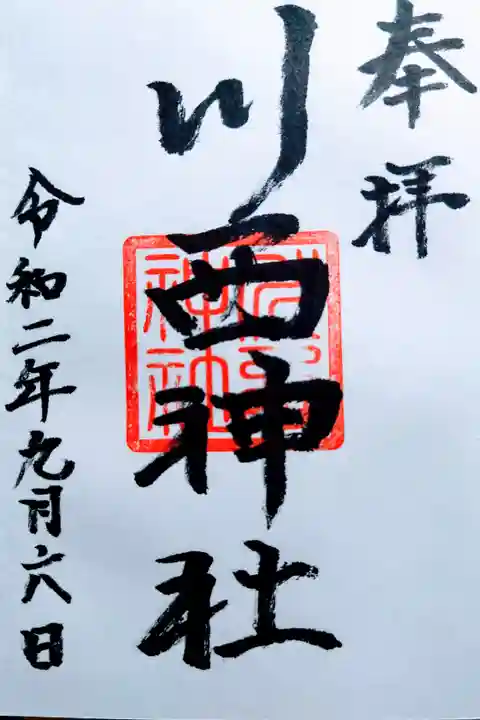 奉拝
川西神社
川西神社
令和二年九月六日